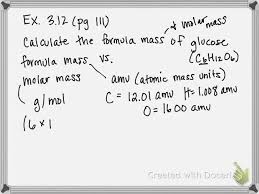 Ex. 3.12 (pg 111) & molar mass
Calculate the formula mass of glucose
formula mass vs. (C₆H₁₂O₆)
molar mass amu (atomic mass units)
g/mol C = 12.01 amu H = 1.008 amu
O = 16.00 amu
(6 × 1
Created with Doceri